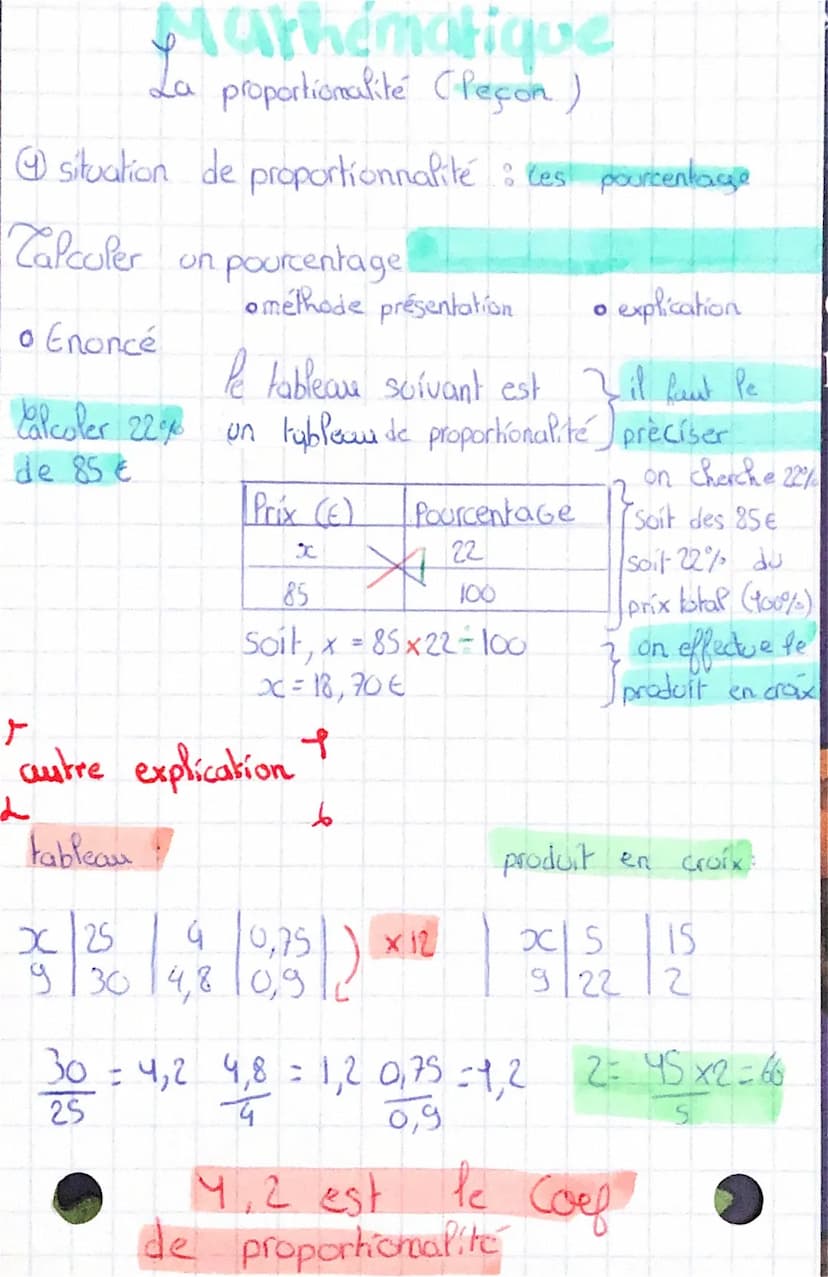 Mathématique
La proportionalité (leçon)
① situation de proportionnalité : les pourcentage
Calculer un pourcentage
o méthode présentation
o explication
o Enoncé
le tableau suivant est
il faut le
Calculer 22%
un tableau de proportionalité
prèciser
de 85 €
on cherche 22%
Prix (€) Pourcentage
soit des 85€
x 22
soit 22% du
85 100
prix total (100%)
soit, x = 85x22÷100
on effectue le
x = 18,70€
produit en croix
autre explication
tableau :
produit en croix:
x | 25 | 4 | 0,75 | x12 | x | 5 | 15
y | 30 | 4,8 | 0,9 | | y | 22 | 2
30/25 = 1,2 4,8/4 = 1,2 0,75/0,9 = 1,2 2= 15x2/5 = 66
1,2 est le Coef
de proportionalité